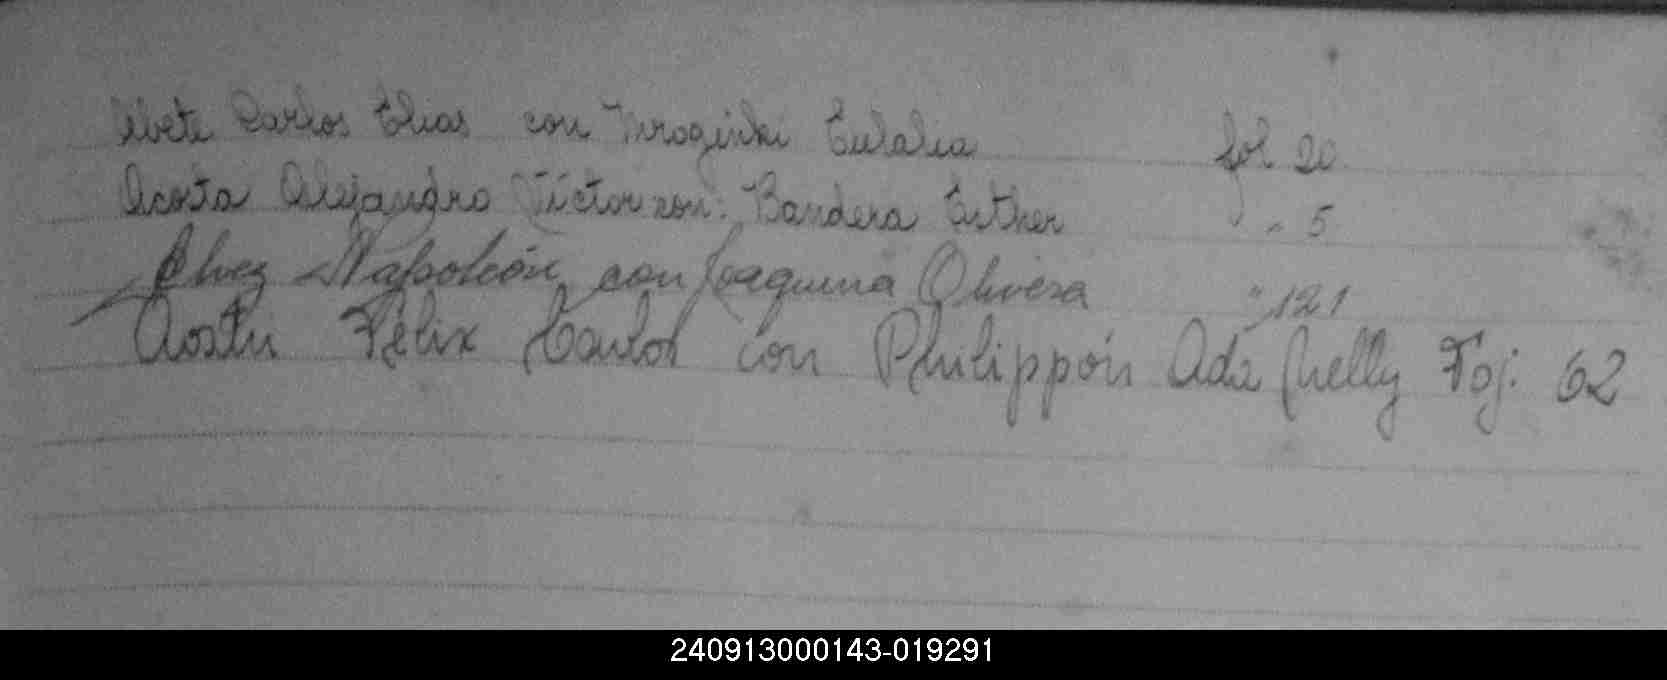 Carlos Elias con Eulalia fol 20
Acosta Alejandro Víctor con: Bandera Esther " 5
Chvez Napoleón con Joaquina Olivera " 121
Félix Carlos con Philippón Ada Nelly Foj: 62
240913000143-019291